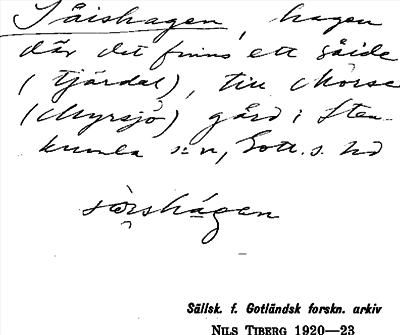 Såishagen, hagen
där det finns ett såide
(tjärdal), till Mörse
(Myrsjö) gård i Sten-
kumla s:n, Gotl. s. hd
Sällsk. f. Gotländsk forskn. arkiv
NILS TIBERG 1920—23